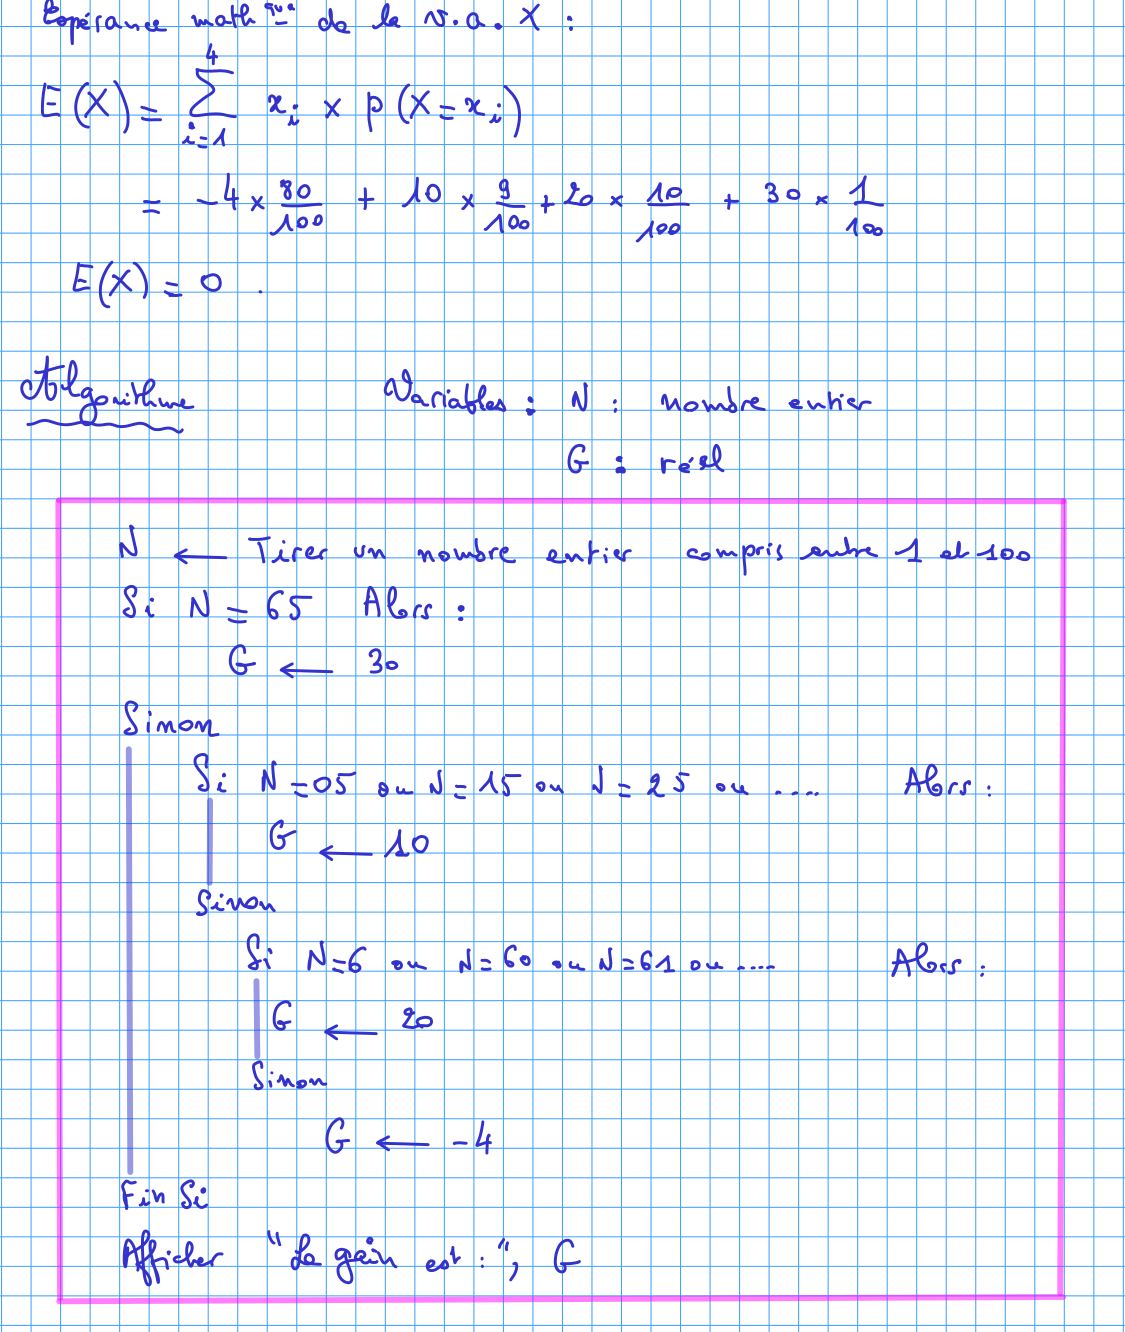 Espérance math que de la v.a. X :
E(X) = 4 ∑ i=1 xi × p(X=xi)
= -4 × 80/100 + 10 × 9/100 + 20 × 10/100 + 30 × 1/100
E(X) = 0 .
Algorithme Variables : N : nombre entier
G : réel
N ← Tirer un nombre entier compris entre 1 et 100
Si N = 65 Alors :
G ← 30
Sinon
Si N = 05 ou N = 15 ou N = 25 ou .... Alors :
G ← 10
Sinon
Si N=6 ou N=60 ou N=61 ou .... Alors :
G ← 20
Sinon
G ← -4
Fin Si
Afficher "Le gain est :", G